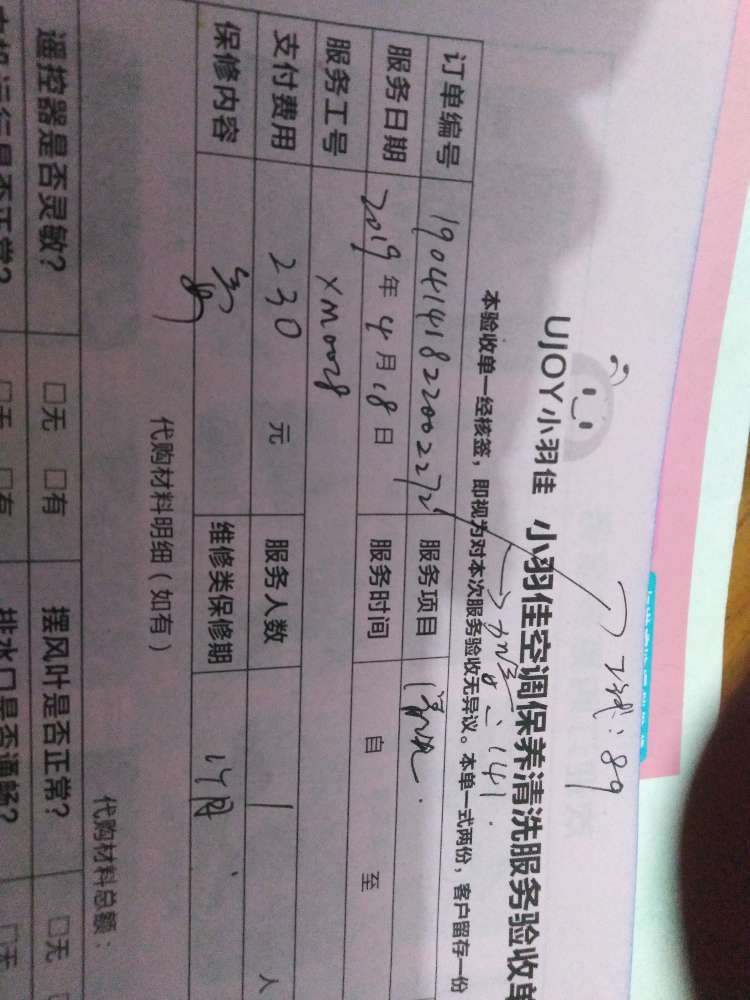 UJOY小羽佳 小羽佳空调保养清洗服务验收单
本验收单一经核签,即视为对本次服务验收无异议。本单一式两份,客户留存一份
:89
:141
订单编号 服务项目
服务日期 2019年4月18日 服务时间 自 至
服务工号 XM0028
支付费用 230元 服务人数 1人
保修内容 维修类保修期 1个月
代购材料明细(如有)
代购材料总额:
遥控器是否灵敏? □无 □有 摆风叶是否正常? □无
运行是否正常? □无 □有 排水口是否通畅? □无